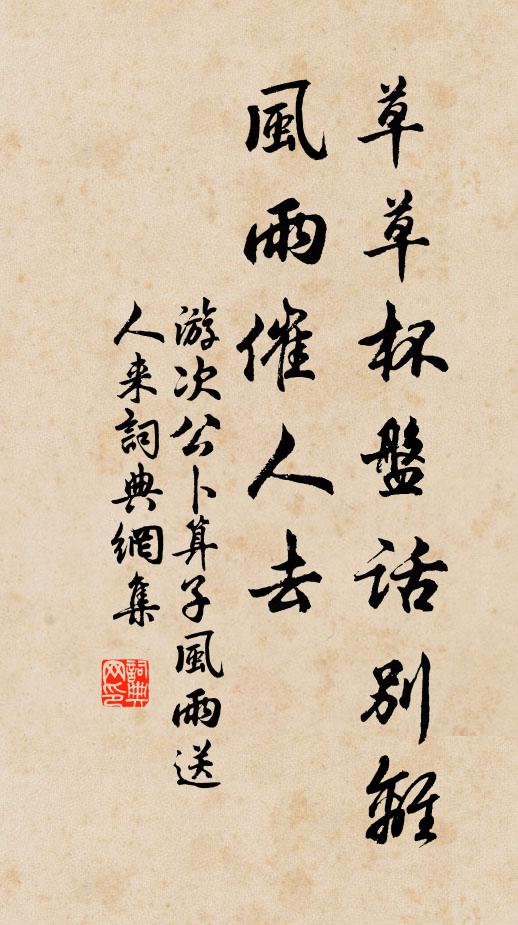 草草杯盤話别離
風雨催人去
游次公卜算子風雨送
人来詞典網集
詞典网印